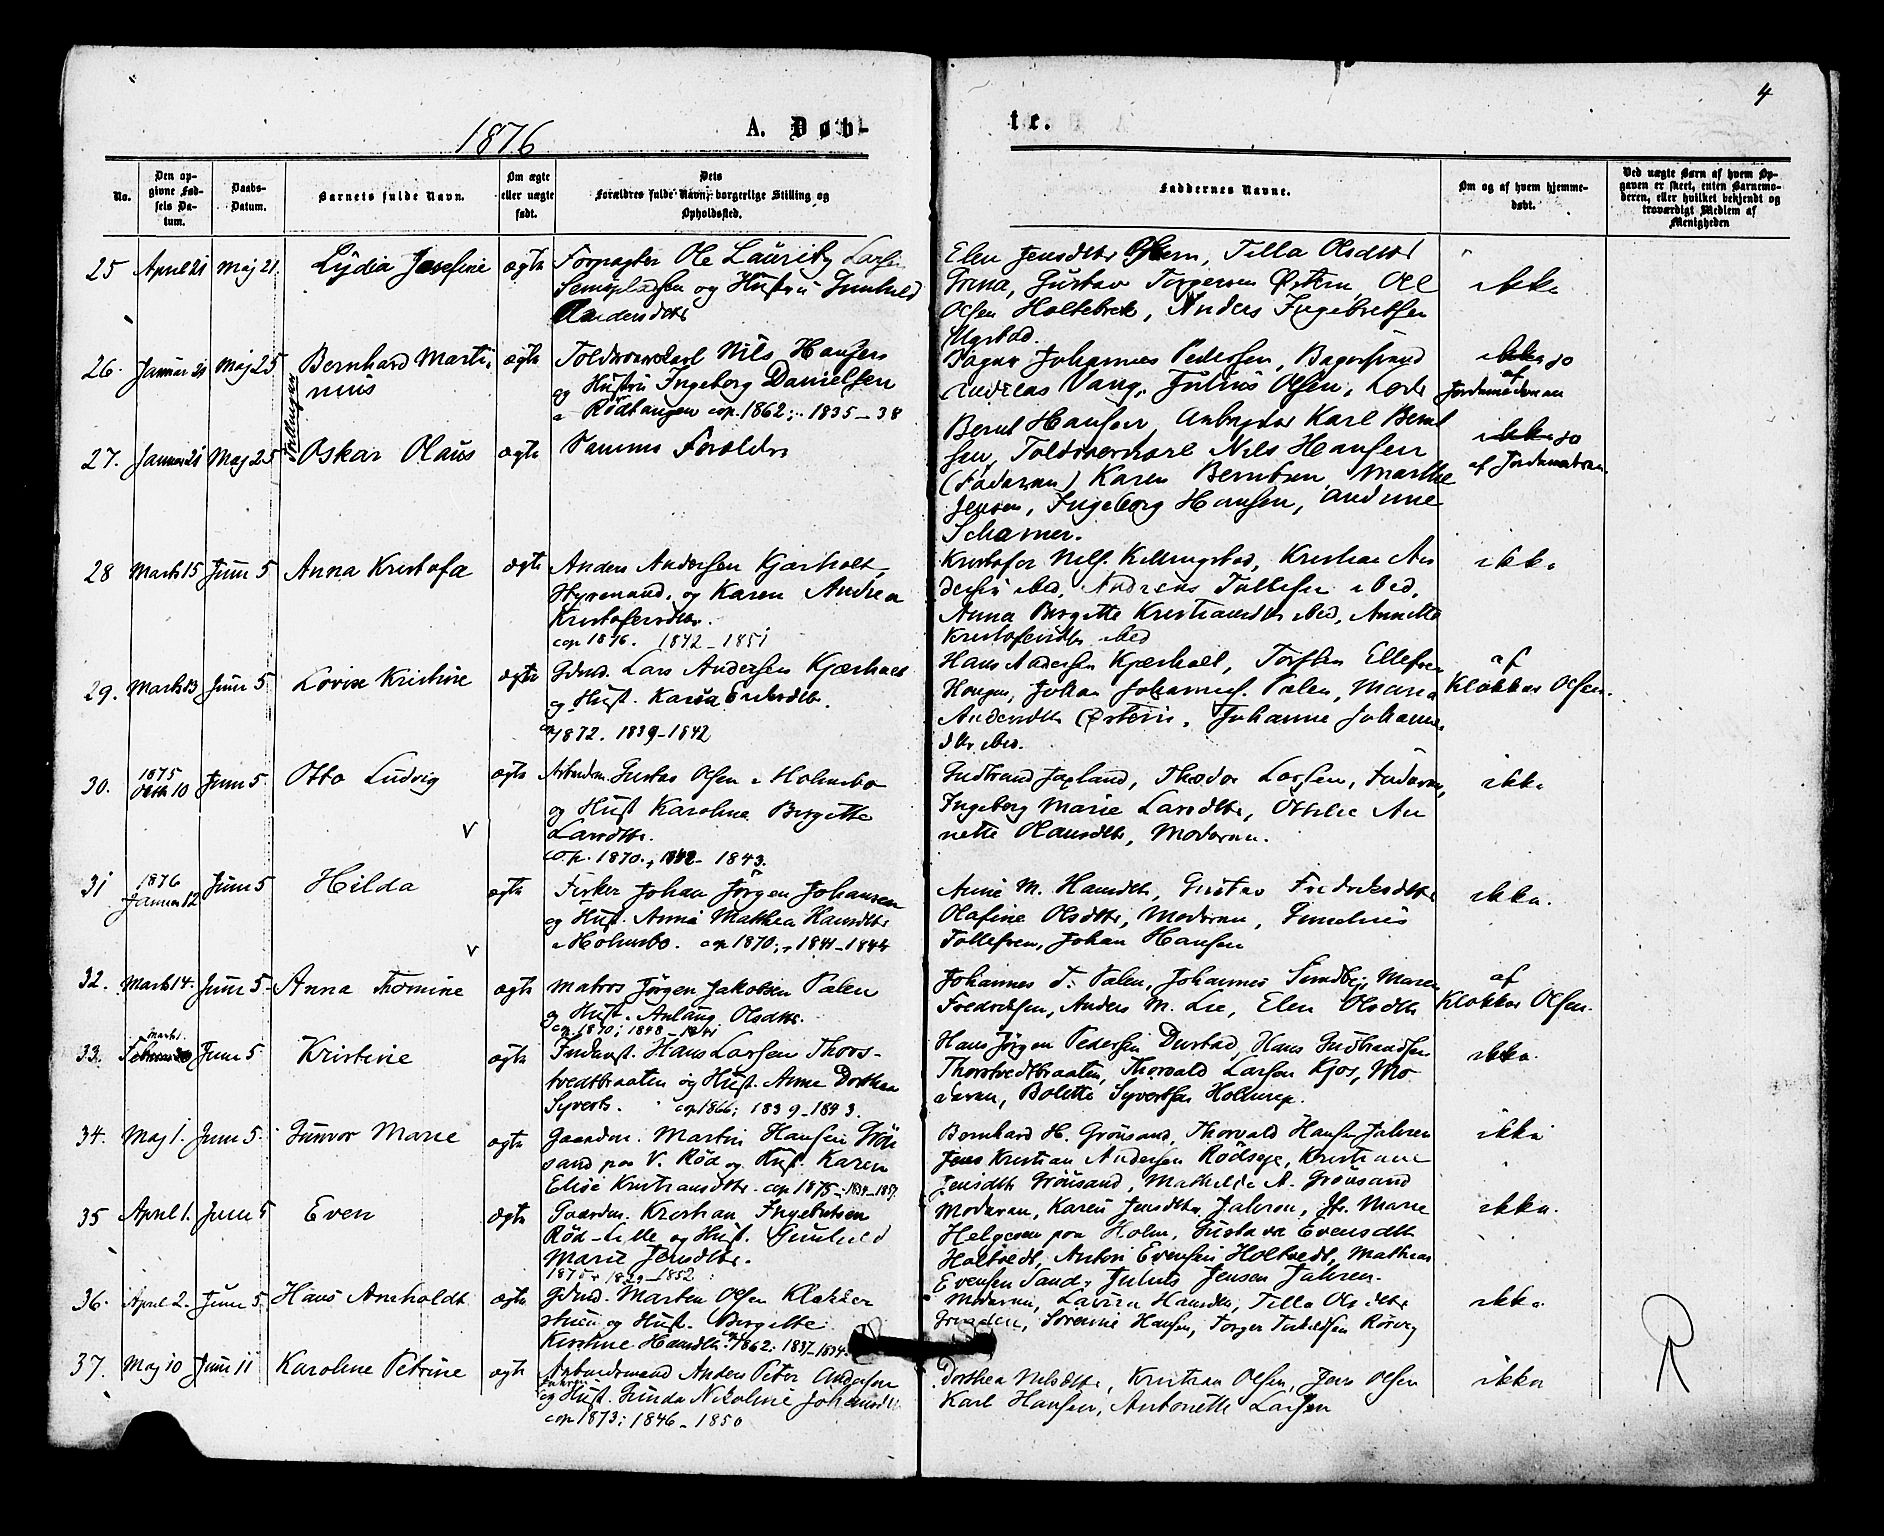 4
1876
A. Døb-
te.
No.
Den op-
givne Fød-
sels Da-
tum.
Daabs-
Datum.
Barnets fulde Navn.
Om ægte
eller uægte
født.
Dets
Forældres fulde Navn, borgerlige Stilling og
Opholdssted.
Faddernes Navne.
Om og af hvem hjemme-
døbt.
Ved uægte Børn af hvem Op-
gaven er skeet, enten Barnemo-
deren, eller hvilket bekjendt og
troværdigt Medlem af
Menigheden
25 April 21 Maj 21. Lydia Josefine ægte Forpagter Ole Lauritz Larsen
og Hustru Gunhild
Andersdtr
Elen Jensdtr Gjern, Tilla Olsdtr
Grina, Gustav Torgersen Østern, Ole
Olsen Holtebrek, Anders Ingebretsen
Mørstad.
ikke
26. Januar 21 Maj 25 Bernhard Marti-
nius
Tvillinger
ægte Toldroerskarl Nils Hansen
og Hustru Ingeborg Danielsen
Rødtangen cop. 1862; 1835-38
Johannes Pedersen, Bagerstrand
Andreas Vang, Julius Olsen, Lods
ikke jo
af
Jordemoderen
27. Januar 21 Maj 25 Oskar Olaus ægte Samme Forældre
Bernt Hansen, Arbejder Karl Bernt
sen, Toldroerkarl Nils Hansen
(Faderen) Karen Berntsen, Marthe
Jensen, Ingeborg Hansen, Andrine
ikke jo
af Jordemoderen.
28 Marts 15 Juni 5 Anna Kristofa ægte Anders Andersen Kjærholt,
Styrmand, og Karen Andrea
Kristofersdtr.
cop 1876. 1842-1851
Kristofer Nils. Killingstad, Kristian An
dersen ibid, Andreas Tollefsen ibid,
Anna Birgitte Kristiansdtr ibid, Annette
Kristofersdtr ibid
ikke
29. Marts 13 Juni 5 Lovise Kristine ægte Gdmd. Lars Andersen Kjærholt
og Hust. Karen Eriksdtr.
cop 1872. 1839-1842
Hans Andersen Kjærholt, Torsten Ellefsen
Haugen, Johan Johannes. Palen, Maren
Andersdtr Østern, Johanne Johannes
dtr ibid.
af
Klokker Olsen.
30. 1875
Oktb 10 Juni 5 Otto Ludvig ægte Arbeidsm. Gustav Olsen i Holmsbo
og Hust Karoline Birgitte
Larsdtr.
cop. 1870., 1842-1843.
v
Gudbrand Japland, Theodor Larsen, Faderen,
Ingeborg Marie Larsdtr, Othilie An
nette Hansdtr, Moderen.
ikke
31 1876
Januar 12 Juni 5 Hilda ægte Fisker Johan Jørgen Johansen
og Hust. Anne Mathea Hansdtr
i Holmsbo. cop 1870; 1841-1844
v
Anne M. Hansdtr, Gustav Fredriksdtr
Olafine Olsdtr, Moderen, Gunelius
Tollefsen, Johan Hansen
ikke.
32. Marts 14. Juni 5 Anna Thomine ægte Matros Jørgen Jakobsen Palen
og Hust. Anlaug Olsdtr.
cop 1870; 1848-1841
Johannes J. Palen, Johannes Sundby, Maren
Fredriksen, Anders M. Lie, Elen Olsdtr
af
Klokker Olsen.
33. Marts 1.
Juni 5 Kristine ægte Inderst. Hans Larsen Thors-
tvedtbraaten og Hust. Anne Dorthea
Syverts. cop 1866; 1839-1843.
Hans Jørgen Pedersen Durstad, Hans Gudbrandsen
Thorstvedtbraaten, Thorvald Larsen Kjos, Mo
deren, Bolette Syvertsen Holtnep.
ikke.
34. Maj 1. Juni 5. Gunvor Marie ægte Gaardm. Martin Hansen Grøn
sand paa V. Rød og Hust. Karen
Elise Kristiansdtr. cop 1875; 1834-1857
Bernhard H. Grønsand, Thorvald Hansen Jahren
Jens Kristian Andersen Rødseje, Kristiane
Jensdtr Grønsand, Mathilde A. Grønsand
ikke
35 April 1. Juni 5 Even ægte Gaardm. Kristian Ingebretsen
Rød-Lille og Hust. Gunhild
Marie Jensdtr.
1875; 1829-1852
Moderen, Karen Jensdtr Jahren, Jfr. Marie
Helgesen paa Holm, Gustava Evensdtr
Holtvedt, Anton Evensen Holtvedt, Mathias
Evensen Sand, Julius Jensen Jahren.
ikke.
36. April 2. Juni 5. Hans Aneholdt ægte Gdmd. Morten Olsen Klokker
stuen og Hust. Birgitte
Kirstine Hansdtr cop 1862; 1837-1834.
Moderen, Lavrin Hansdtr, Tilla Olsdtr
Sørenine Hansen, Torger Torkildsen Rørvig
ikke
37. Maj 10 Juni 11 Karoline Petrine ægte Arbeidsmand Anders Peter Andersen
og Hust. Gunda Nikoline Johansdtr
cop 1873; 1846-1850
Dorthea Nilsdtr, Kristian Olsen, Jens Olsen
Karl Hansen, Antonette Larsen
ikke
R